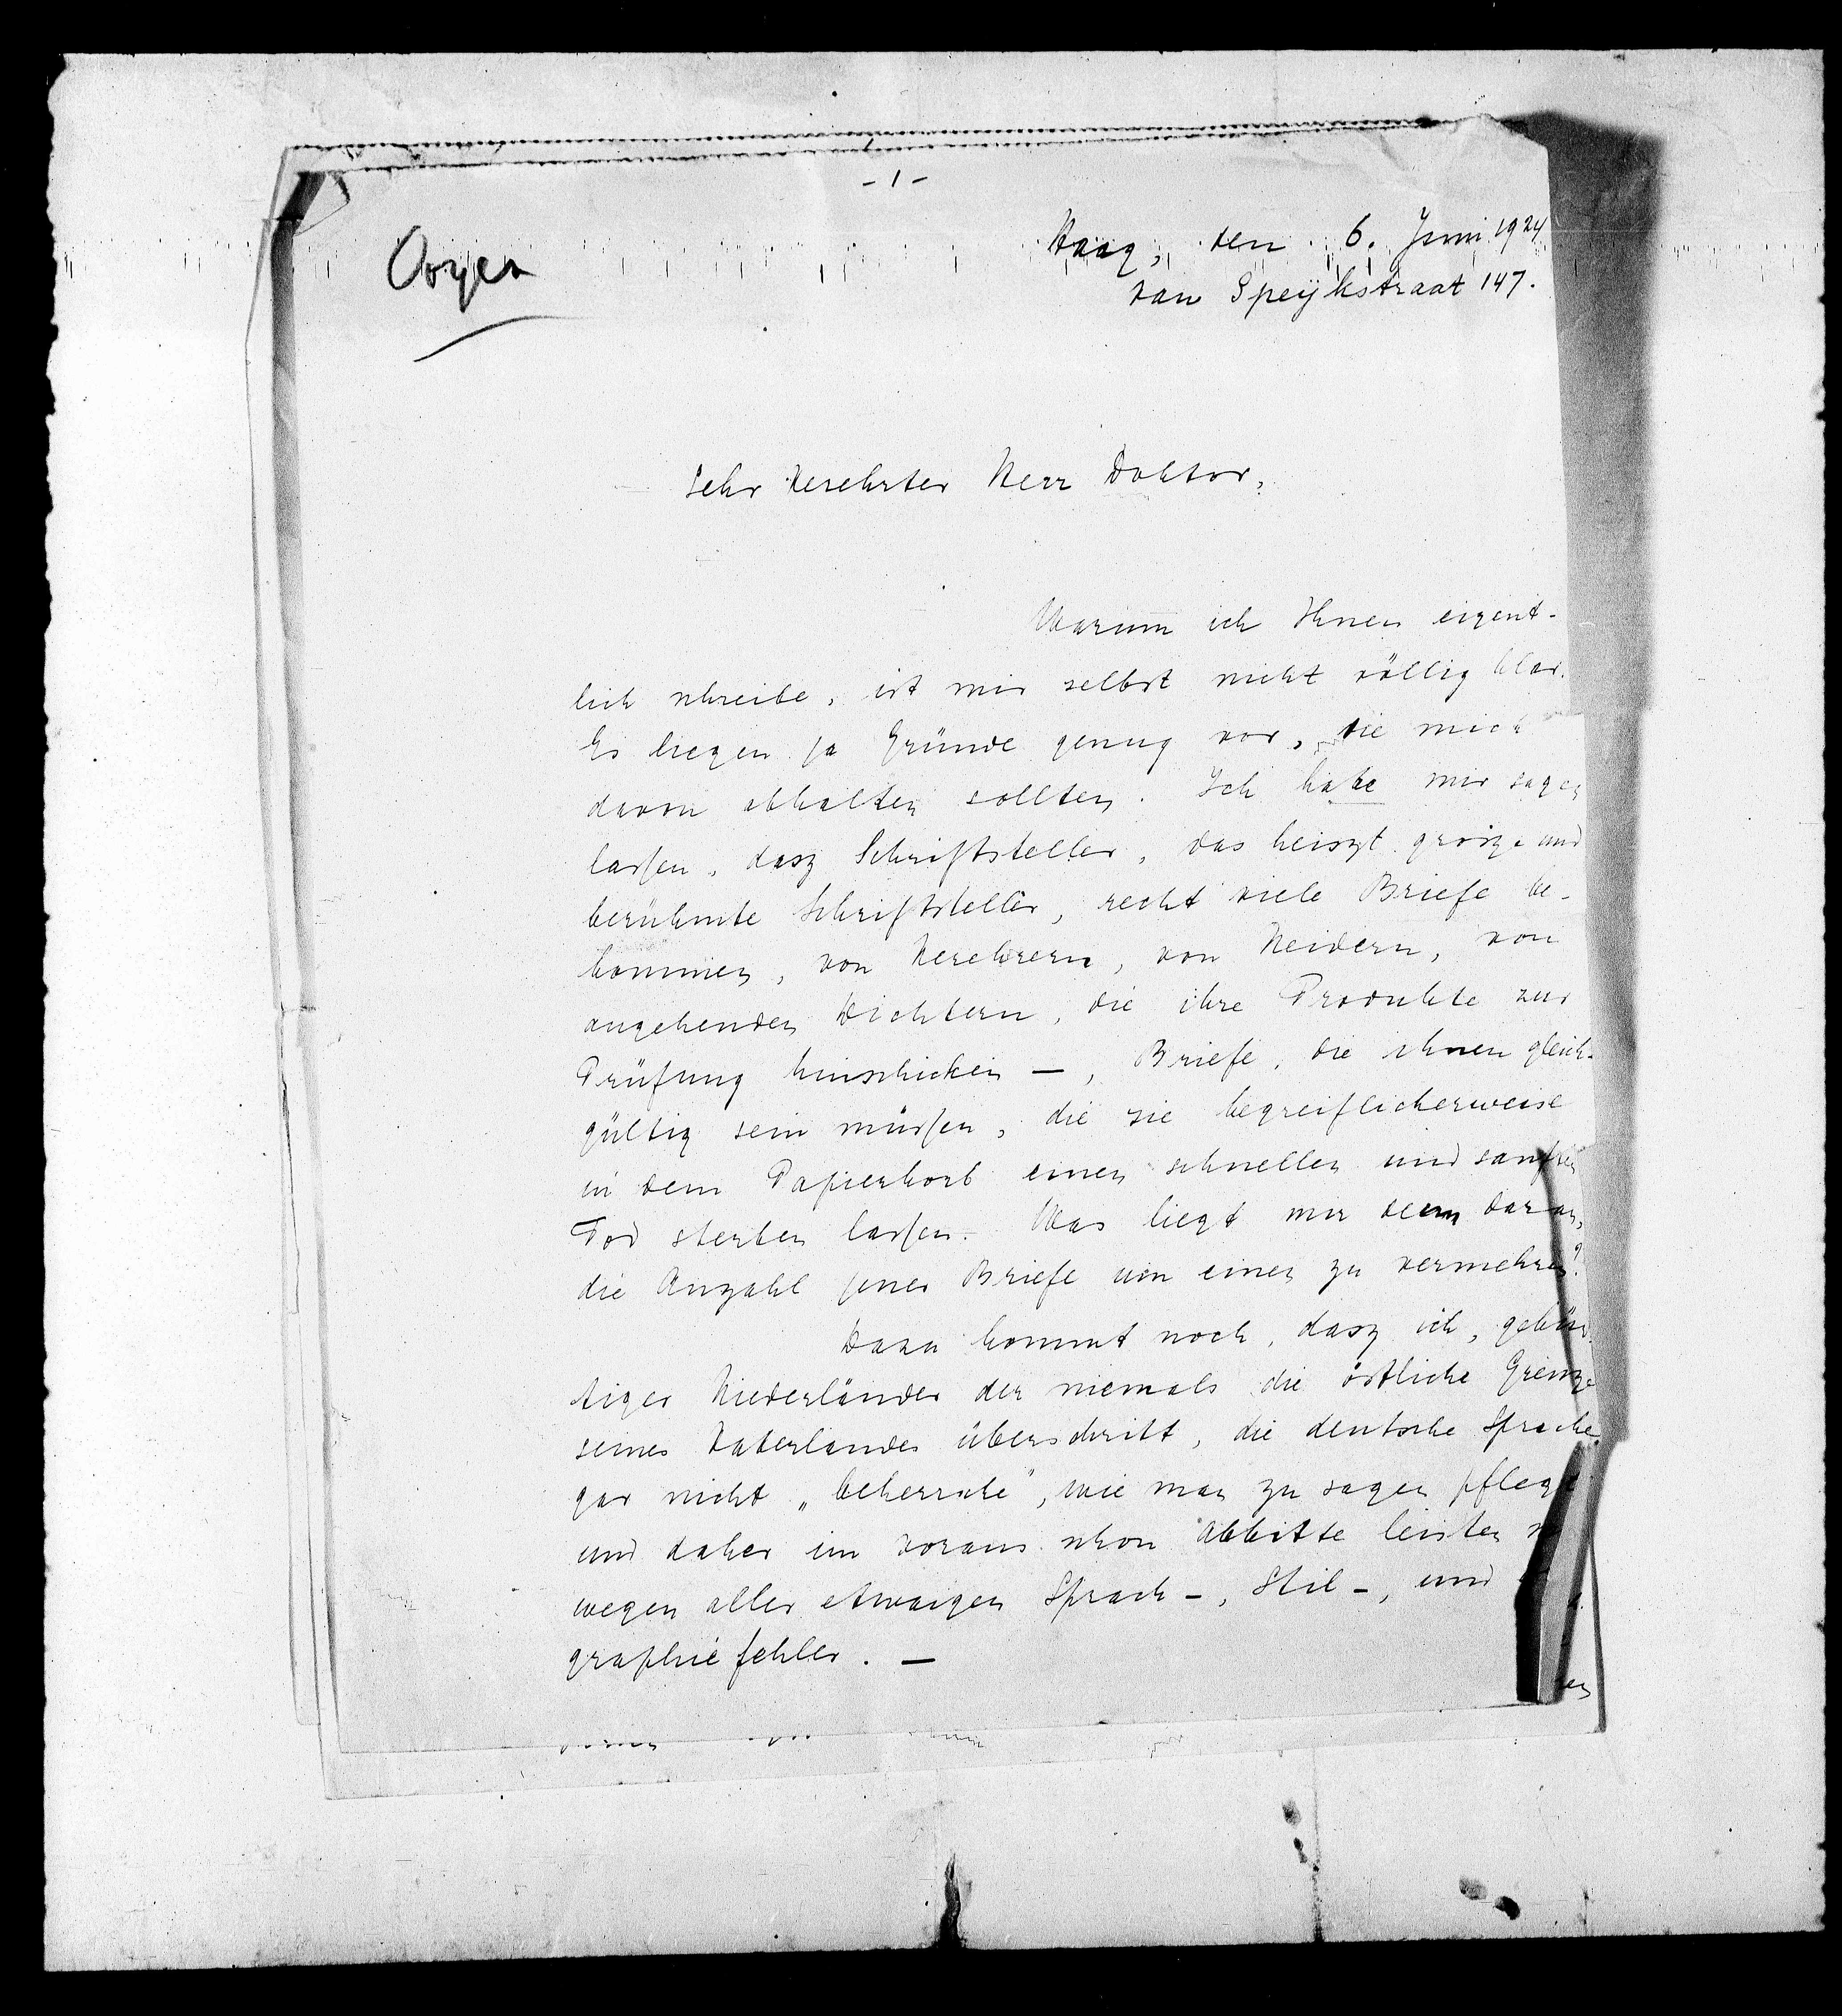 - 1 -
Ooyen
Haag, den 6. Juni 1924
van Speijkstraat 147.
Sehr Verehrter Herr Doktor,
Warum ich Ihnen eigent-
lich schreibe, ist mir selbst nicht völlig klar.
Es liegen ja Gründe genug vor, die mich
davon abhalten sollten. Ich habe mir sagen
lassen, dasz Schriftsteller, das heiszt grosze und
berühmte Schriftsteller, recht viele Briefe be-
kommen, von Verehrern, von Neidern, von
angehenden Dichtern, die ihre Produkte zur
Prüfung hinschicken —, Briefe, die ihnen gleich-
gültig sein müssen, die sie begreiflicherweise
in dem Papierkorb einen schnellen und sanften
Tod sterben lassen. Was liegt mir denn daran,
die Anzahl jener Briefe um einen zu vermehren?
Dazu kommt noch, dasz ich, gebür-
tiger Niederländer der niemals die östliche Grenze
seines Vaterlandes überschritt, die deutsche Sprache
gar nicht „beherrsche", wie man zu sagen pflegt
und daher im voraus schon Abbitte leisten
wegen aller etwaigen Sprach-, Stil-, und
graphiefehler. —